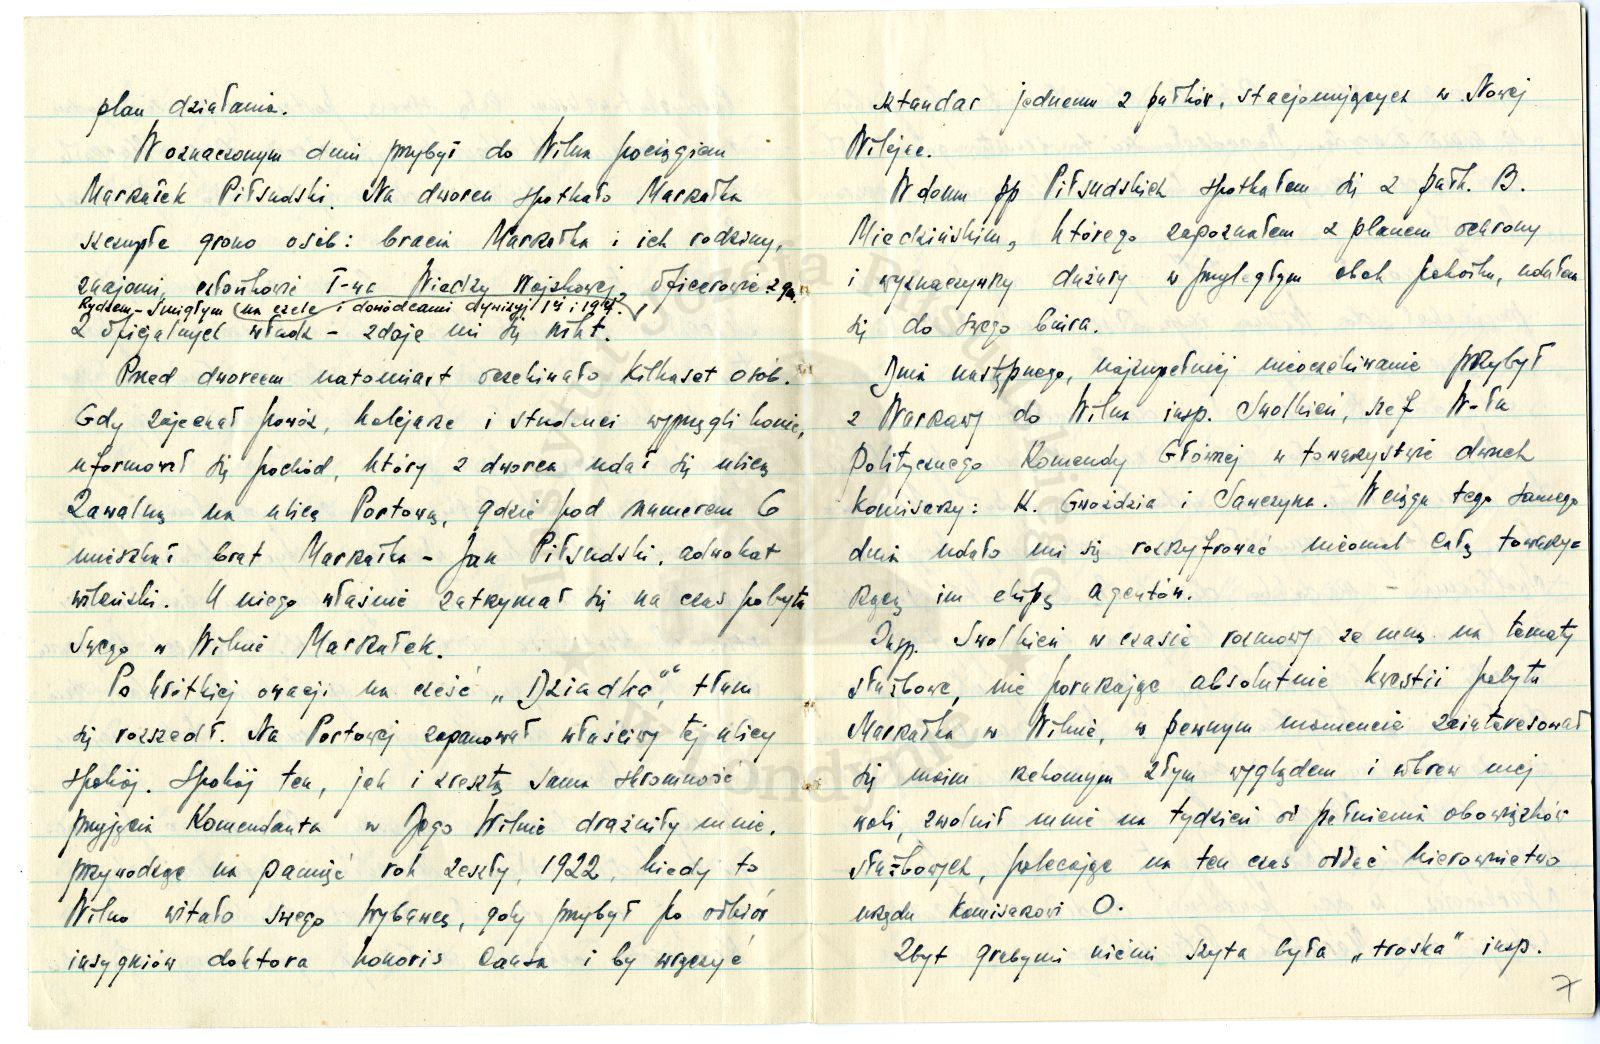 plan działania.
W oznaczonym dniu przybył do Wilna pociągiem
Marszałek Piłsudski. Na dworcu spotkało Marszałka
szczupłe grono osób: bracia Marszałka i ich rodziny,
znajomi, członkowie T-wa Wiedzy Wojskowej, oficerowie z gen.
Rydzem-Śmigłym na czele i dowódcami dywizyj 1ej i 19ej.
Z oficjalnych władz – zdaje mi się nikt.
Przed dworcem natomiast oczekiwało kilkaset osób.
Gdy zajechał powóz, kolejarze i studenci wyprzęgli konie,
uformował się pochód, który z dworca udał się ulicą
Zawalną na ulicę Portową, gdzie pod numerem 6
mieszkał brat Marszałka – Jan Piłsudski, adwokat
wileński. U niego właśnie zatrzymał się na czas pobytu
swego w Wilnie Marszałek.
Po krótkiej owacji na cześć „Dziadka”, tłum
się rozszedł. Na Portowej zapanował właściwy tej ulicy
spokój. Spokój ten, jak i zresztą sama skromność
przyjęcia Komendanta w Jego Wilnie drażniły mnie,
przywodząc na pamięć rok zeszły, 1922, kiedy to
Wilno witało swego Wybawcę, gdy przybył po odbiór
insygniów doktora honoris causa i by wręczyć
sztandar jednemu z pułków, stacjonujących w Nowej
Wilejce.
W domu pp Piłsudskich spotkałem się z pułk. B.
Miedzińskim, którego zapoznałem z planem ochrony
i wyznaczywszy dyżury w przyległym obok pokoiku, udałem
się do swego biura.
Dnia następnego, najzupełniej nieoczekiwanie przybył
z Warszawy do Wilna insp. Swolkień, szef W-łu
Politycznego Komendy Głównej w towarzystwie dwuch
Komisarzy: K. Gwoździa i Sawczyna. W ciągu tego samego
dnia udało mi się rozszyfrować nieomal całą towarzy=
szącą im ekipę agentów.
Insp. Swolkień w czasie rozmowy ze mną na tematy
służbowe, nie poruszając absolutnie kwestii pobytu
Marszałka w Wilnie, w pewnym momencie zainteresował
się moim rzekomym złym wyglądem i wbrew mej
woli, zwolnił mnie na tydzień od pełnienia obowiązków
służbowych, polecając na ten czas oddać kierownictwo
urzędu Komisarzowi O.
Zbyt grubymi nićmi szyta była „troska” insp.
7
Instytut Józefa Piłsudskiego
w Londynie